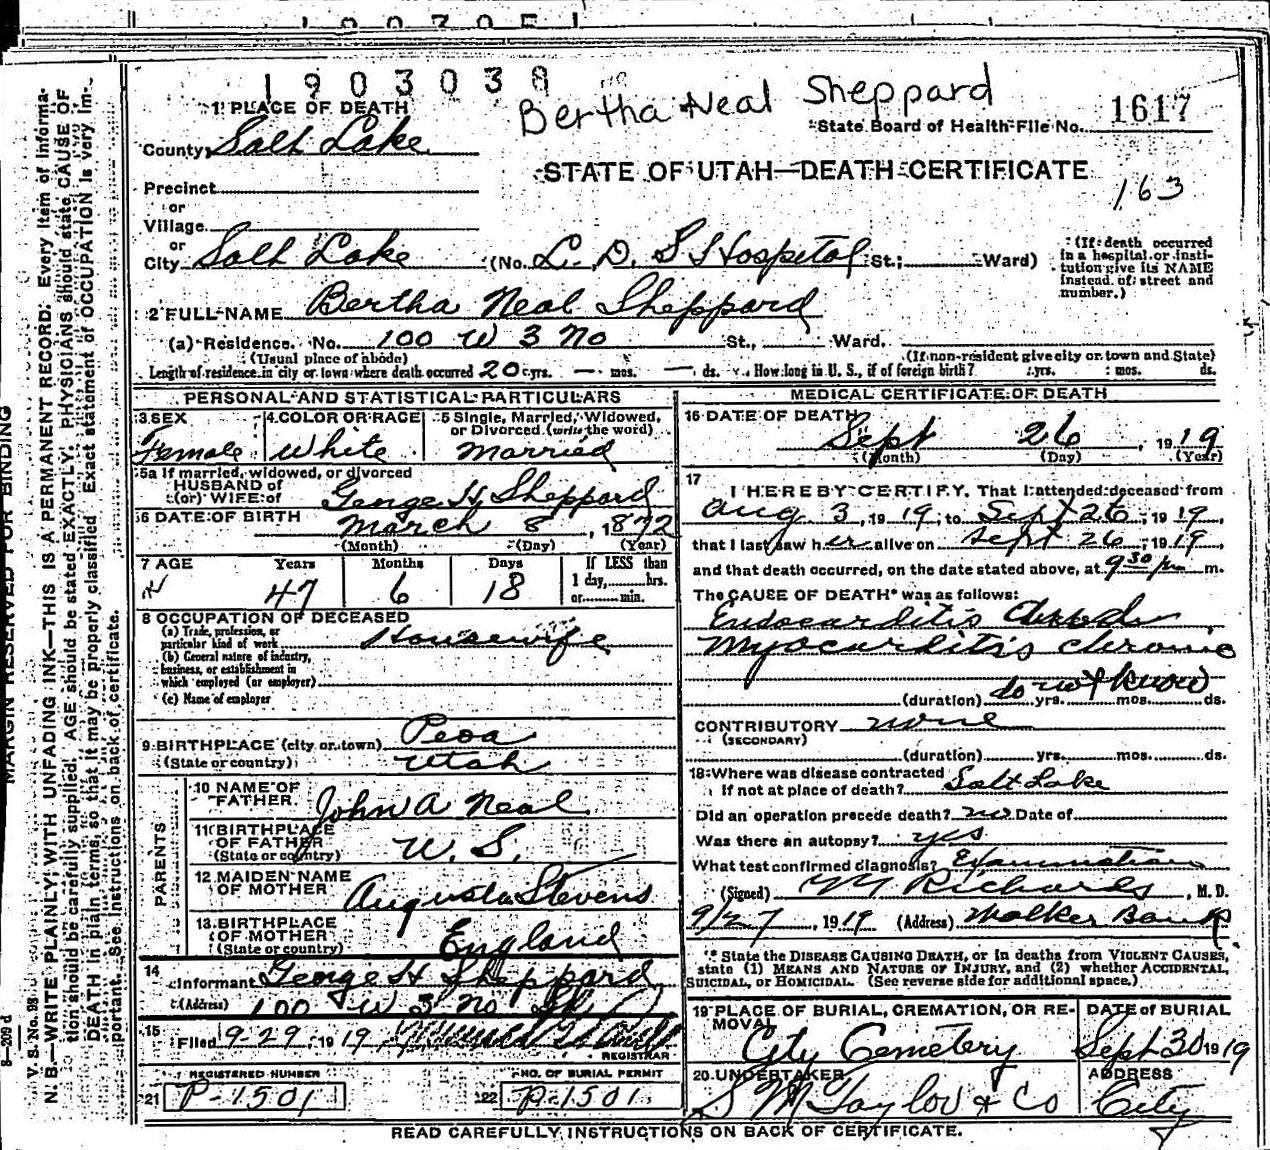 1903038
Bertha Neal Sheppard
1 PLACE OF DEATH
State Board of Health File No. 1617
County Salt Lake
STATE OF UTAH—DEATH CERTIFICATE
163
Precinct
or
Village
or
City Salt Lake (No. L. D. S Hospital St.; Ward)
(If death occurred in a hospital or institution give its NAME instead of street and number.)
2 FULL NAME Bertha Neal Sheppard
(a) Residence. No. 100 W 3 No St., Ward.
(Usual place of abode) (If non-resident give city or town and State)
Length of residence in city or town where death occurred 20 yrs. — mos. — ds. How long in U. S., if of foreign birth? yrs. mos. ds.
PERSONAL AND STATISTICAL PARTICULARS
3 SEX Female
4 COLOR OR RACE White
5 Single, Married, Widowed, or Divorced (write the word) Married
5a If married, widowed, or divorced
HUSBAND of
(or) WIFE of George H Sheppard
6 DATE OF BIRTH March 8, 1872
(Month) (Day) (Year)
7 AGE Years Months Days If LESS than
47 6 18 1 day, hrs.
or min.
8 OCCUPATION OF DECEASED
(a) Trade, profession, or particular kind of work Housewife
(b) General nature of industry, business, or establishment in which employed (or employer)
(c) Name of employer
9 BIRTHPLACE (city or town) Peoa
(State or country) Utah
PARENTS
10 NAME OF FATHER John A Neal
11 BIRTHPLACE OF FATHER (State or country) U. S.
12 MAIDEN NAME OF MOTHER Augusta Stevens
13 BIRTHPLACE OF MOTHER (State or country) England
14 Informant George H Sheppard
(Address) 100 W 3 No St
15 Filed 9-29, 1919
REGISTRAR
REGISTERED NUMBER
21 P-1501
NO. OF BURIAL PERMIT
22 P-1501
MEDICAL CERTIFICATE OF DEATH
16 DATE OF DEATH
Sept 26, 1919
(Month) (Day) (Year)
17 I HEREBY CERTIFY, That I attended deceased from
Aug 3, 1919, to Sept 26, 1919,
that I last saw her alive on Sept 26, 1919,
and that death occurred, on the date stated above, at 9 30 pm m.
The CAUSE OF DEATH* was as follows:
Endocarditis
Myocarditis chronic
(duration) do not know yrs. mos. ds.
CONTRIBUTORY none
(SECONDARY)
(duration) yrs. mos. ds.
18 Where was disease contracted
If not at place of death? Salt Lake
Did an operation precede death? no Date of
Was there an autopsy? yes
What test confirmed diagnosis? Examination
(Signed) Richards, M. D.
9/27, 1919 (Address) Walker Bank
* State the DISEASE CAUSING DEATH, or in deaths from VIOLENT CAUSES,
state (1) MEANS AND NATURE OF INJURY, and (2) whether ACCIDENTAL,
SUICIDAL, or HOMICIDAL. (See reverse side for additional space.)
19 PLACE OF BURIAL, CREMATION, OR REMOVAL
City Cemetery
DATE of BURIAL
Sept 30 1919
20 UNDERTAKER
S M Taylor & Co
ADDRESS
City
READ CAREFULLY INSTRUCTIONS ON BACK OF CERTIFICATE.
MARGIN RESERVED FOR BINDING
N. B.—WRITE PLAINLY, WITH UNFADING INK—THIS IS A PERMANENT RECORD. Every item of information should be carefully supplied. AGE should be stated EXACTLY. PHYSICIANS should state CAUSE OF DEATH in plain terms, so that it may be properly classified. Exact statement of OCCUPATION is very important. See Instructions on back of certificate.
V. S. No. 98
8—209 d